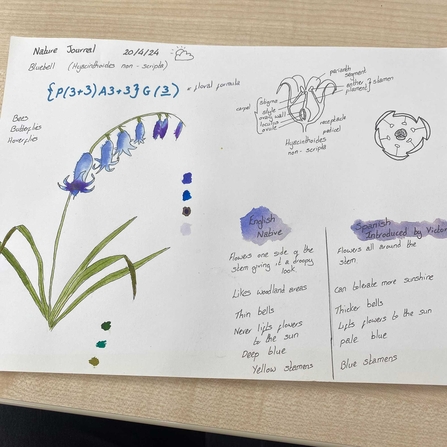 Nature Journal 20/4/24
Bluebell (Hyacinthoides non-scripta)
{P(3+3)A3+3}G(3) * floral formula
Bees
Butterflies
Hoverflies
perianth
segment
anther } stamen
filament
carpel { stigma
style
ovary wall
ovule
receptacle
pedicel
Hyacinthoides
non-scripta
English
Native
Flowers one side of the
stem giving it a droopy
look
Likes woodland areas
Thin bells
Never lifts flowers
to the sun
Deep blue
Yellow stamens
Spanish
Introduced by Victor
Flowers all around the
stem
Can tolerate more sunshine
Thicker bells
Lifts flowers to the sun
pale blue
Blue stamens